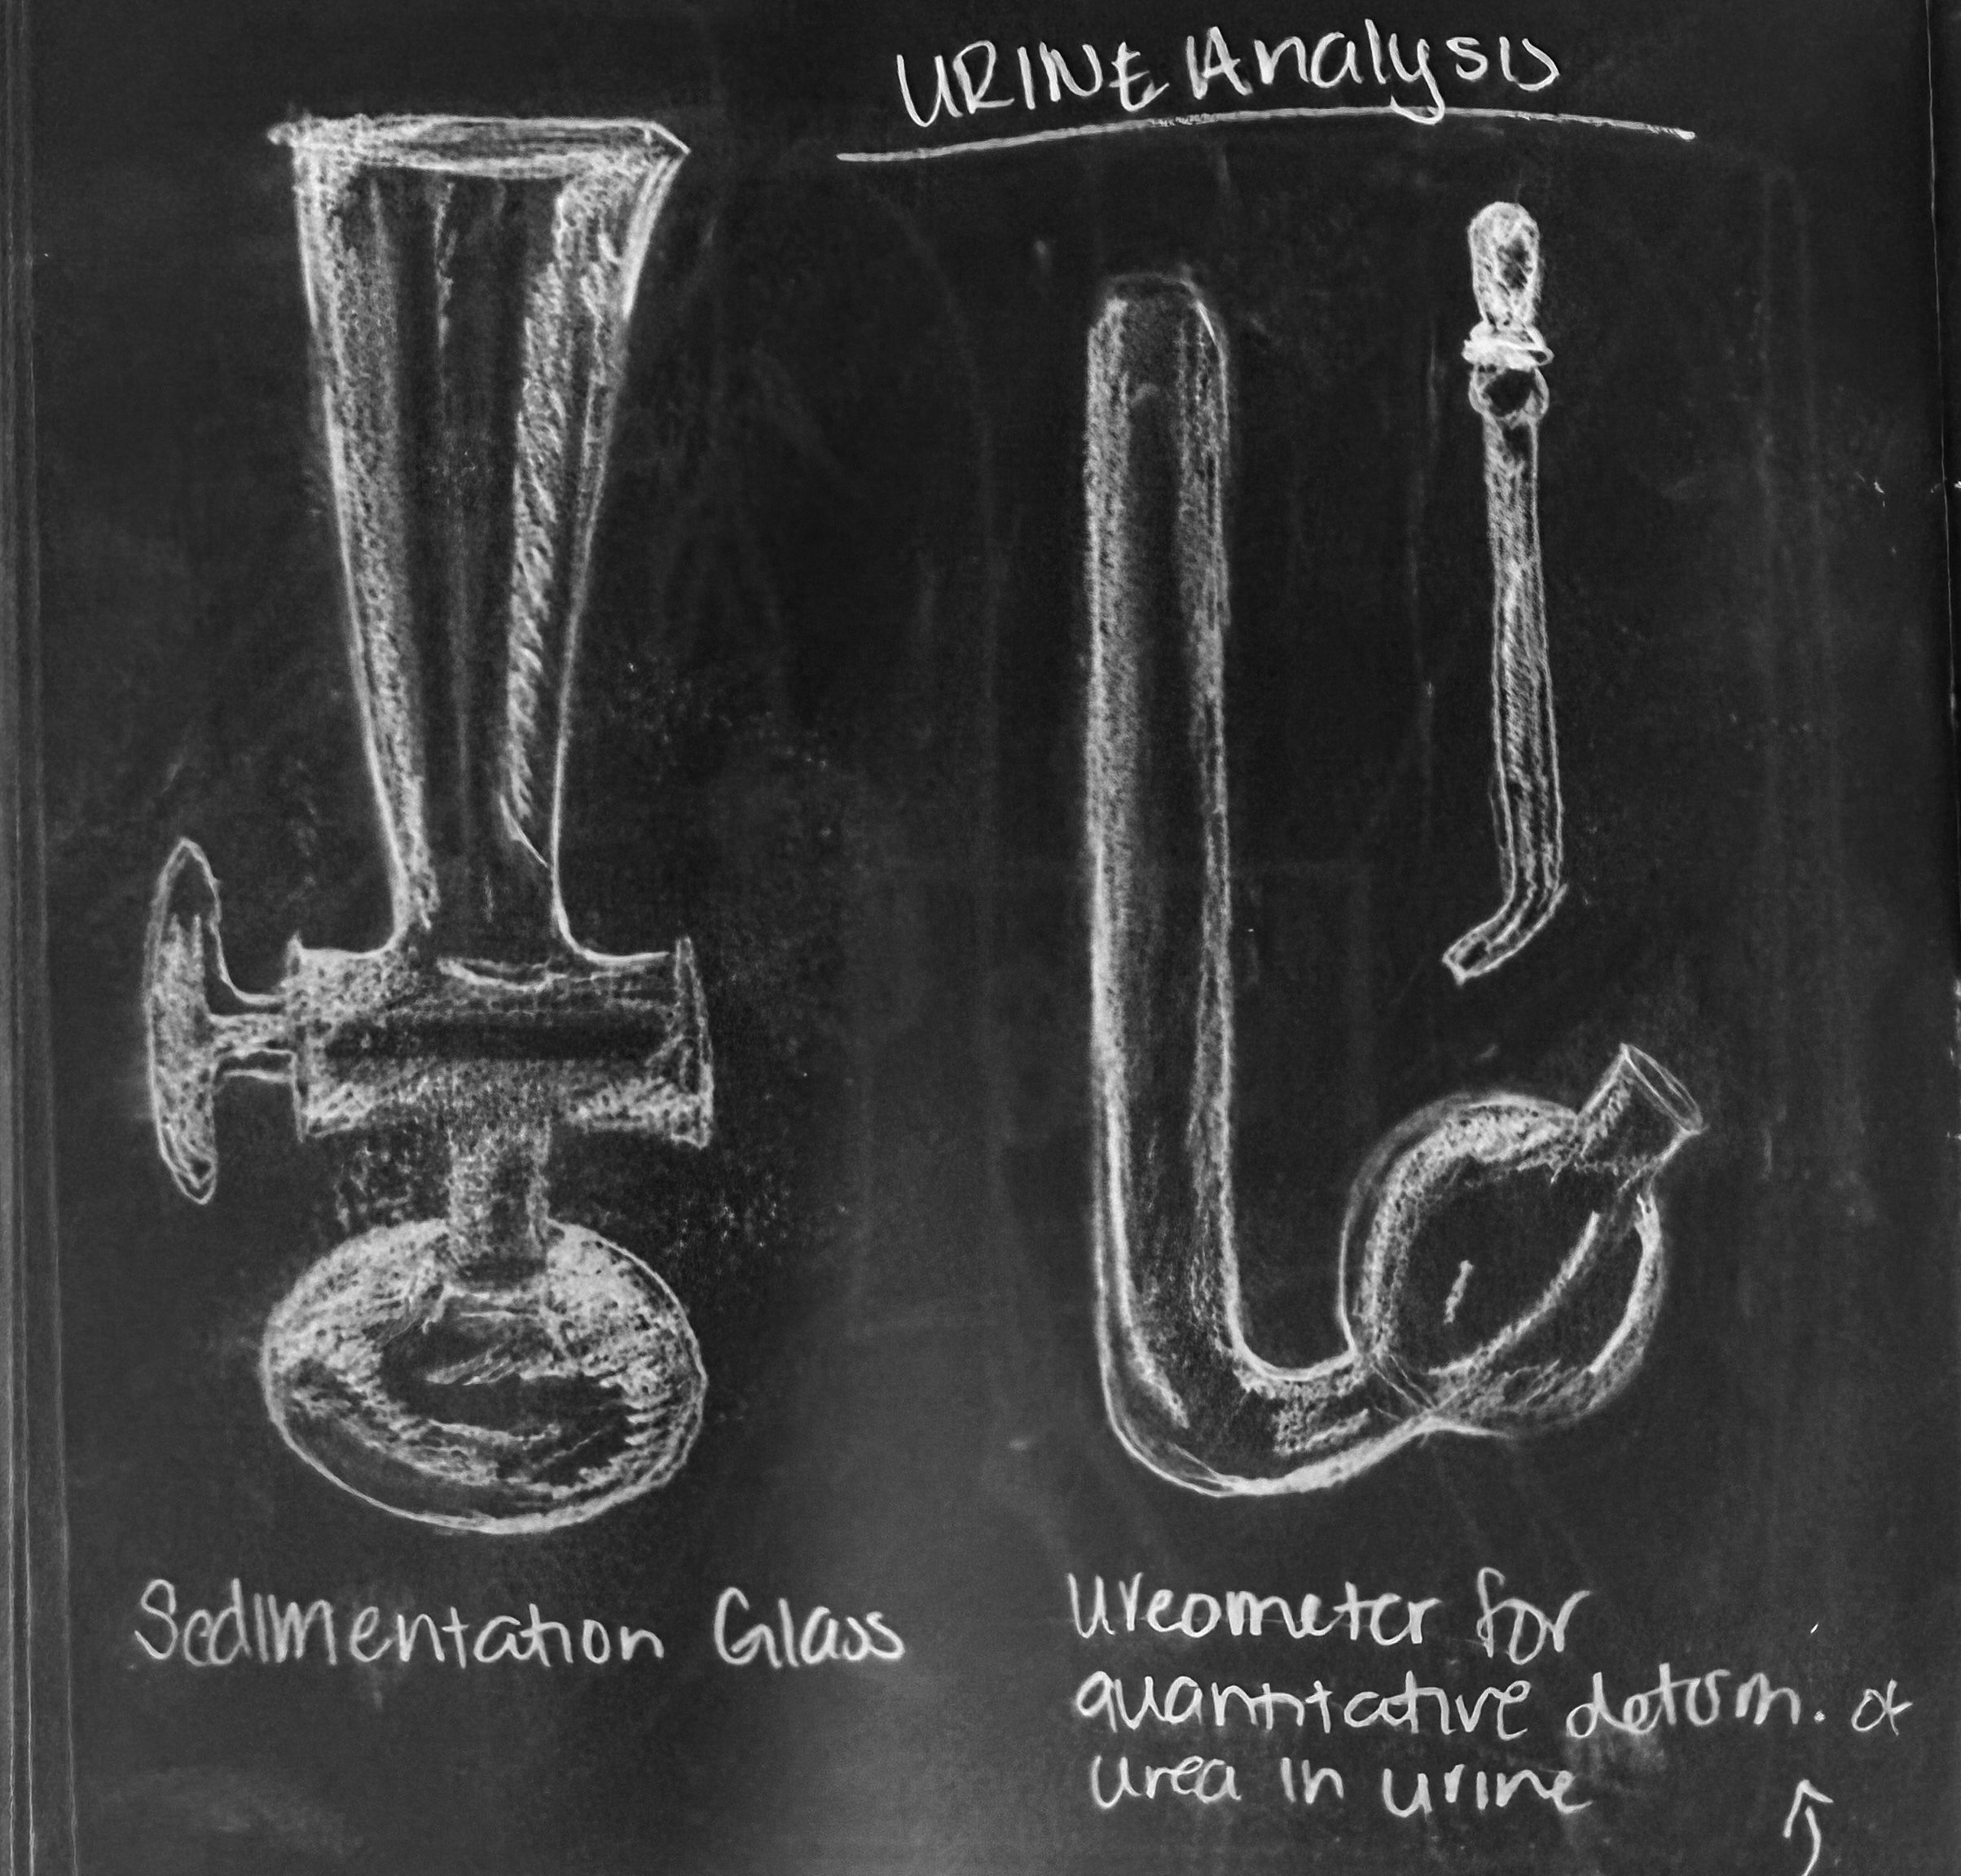 URINE Analysis
Sedimentation Glass
Ureometer for
quantitative determ. of
urea in urine